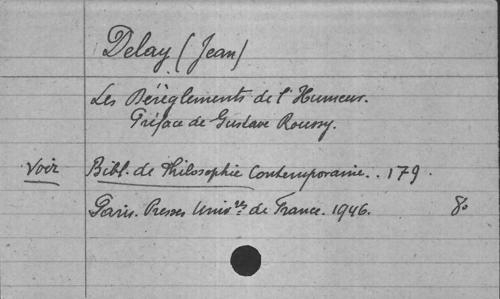 Delay (Jean)
Les Dérèglements de l'Humeur.
Préface de Gustave Roussy.
Voir Bibl. de Philosophie Contemporaine. . 179.
Paris. Presses Univ.res de France. 1946. 8o